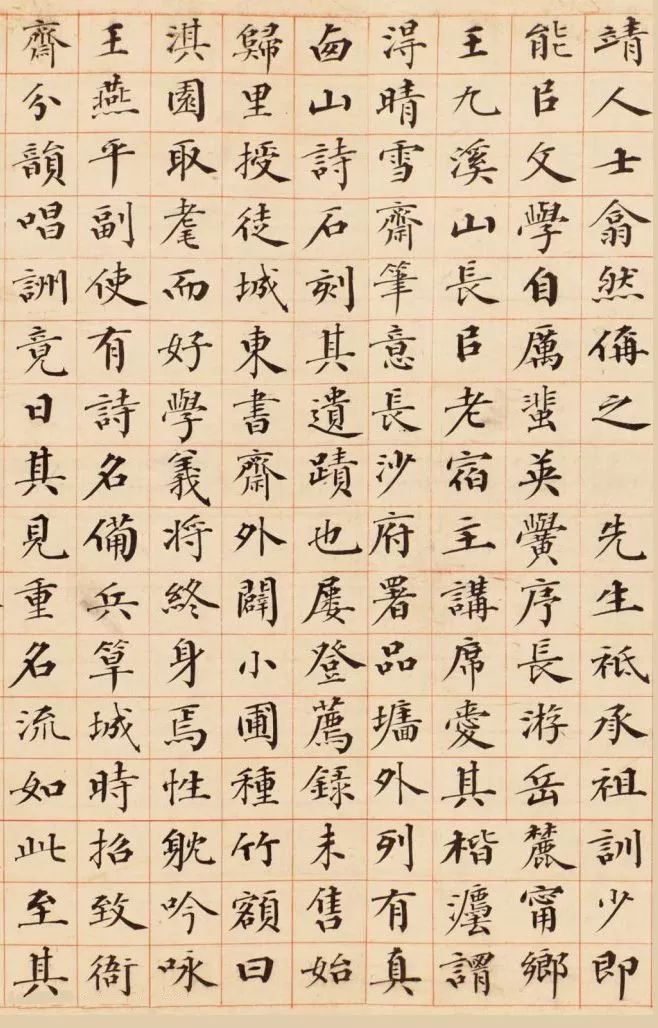 靖人士翕然偁之　先生祗承祖訓少即
能㠯文學自厲蜚英黌序長游岳麓甯鄉
王九溪山長㠯老宿主講席愛其楷灋謂
淂晴雪齋筆意長沙府署品墉外列有真
西山詩石刻其遺蹟也屡登薦録未售始
歸里授徒城東書齋外闢小圃種竹額曰
淇園取耄而好學義將終身焉性躭吟咏
王燕平副使有詩名備兵筸城時招致衙
齋分韻唱詶竟日其見重名流如此至其